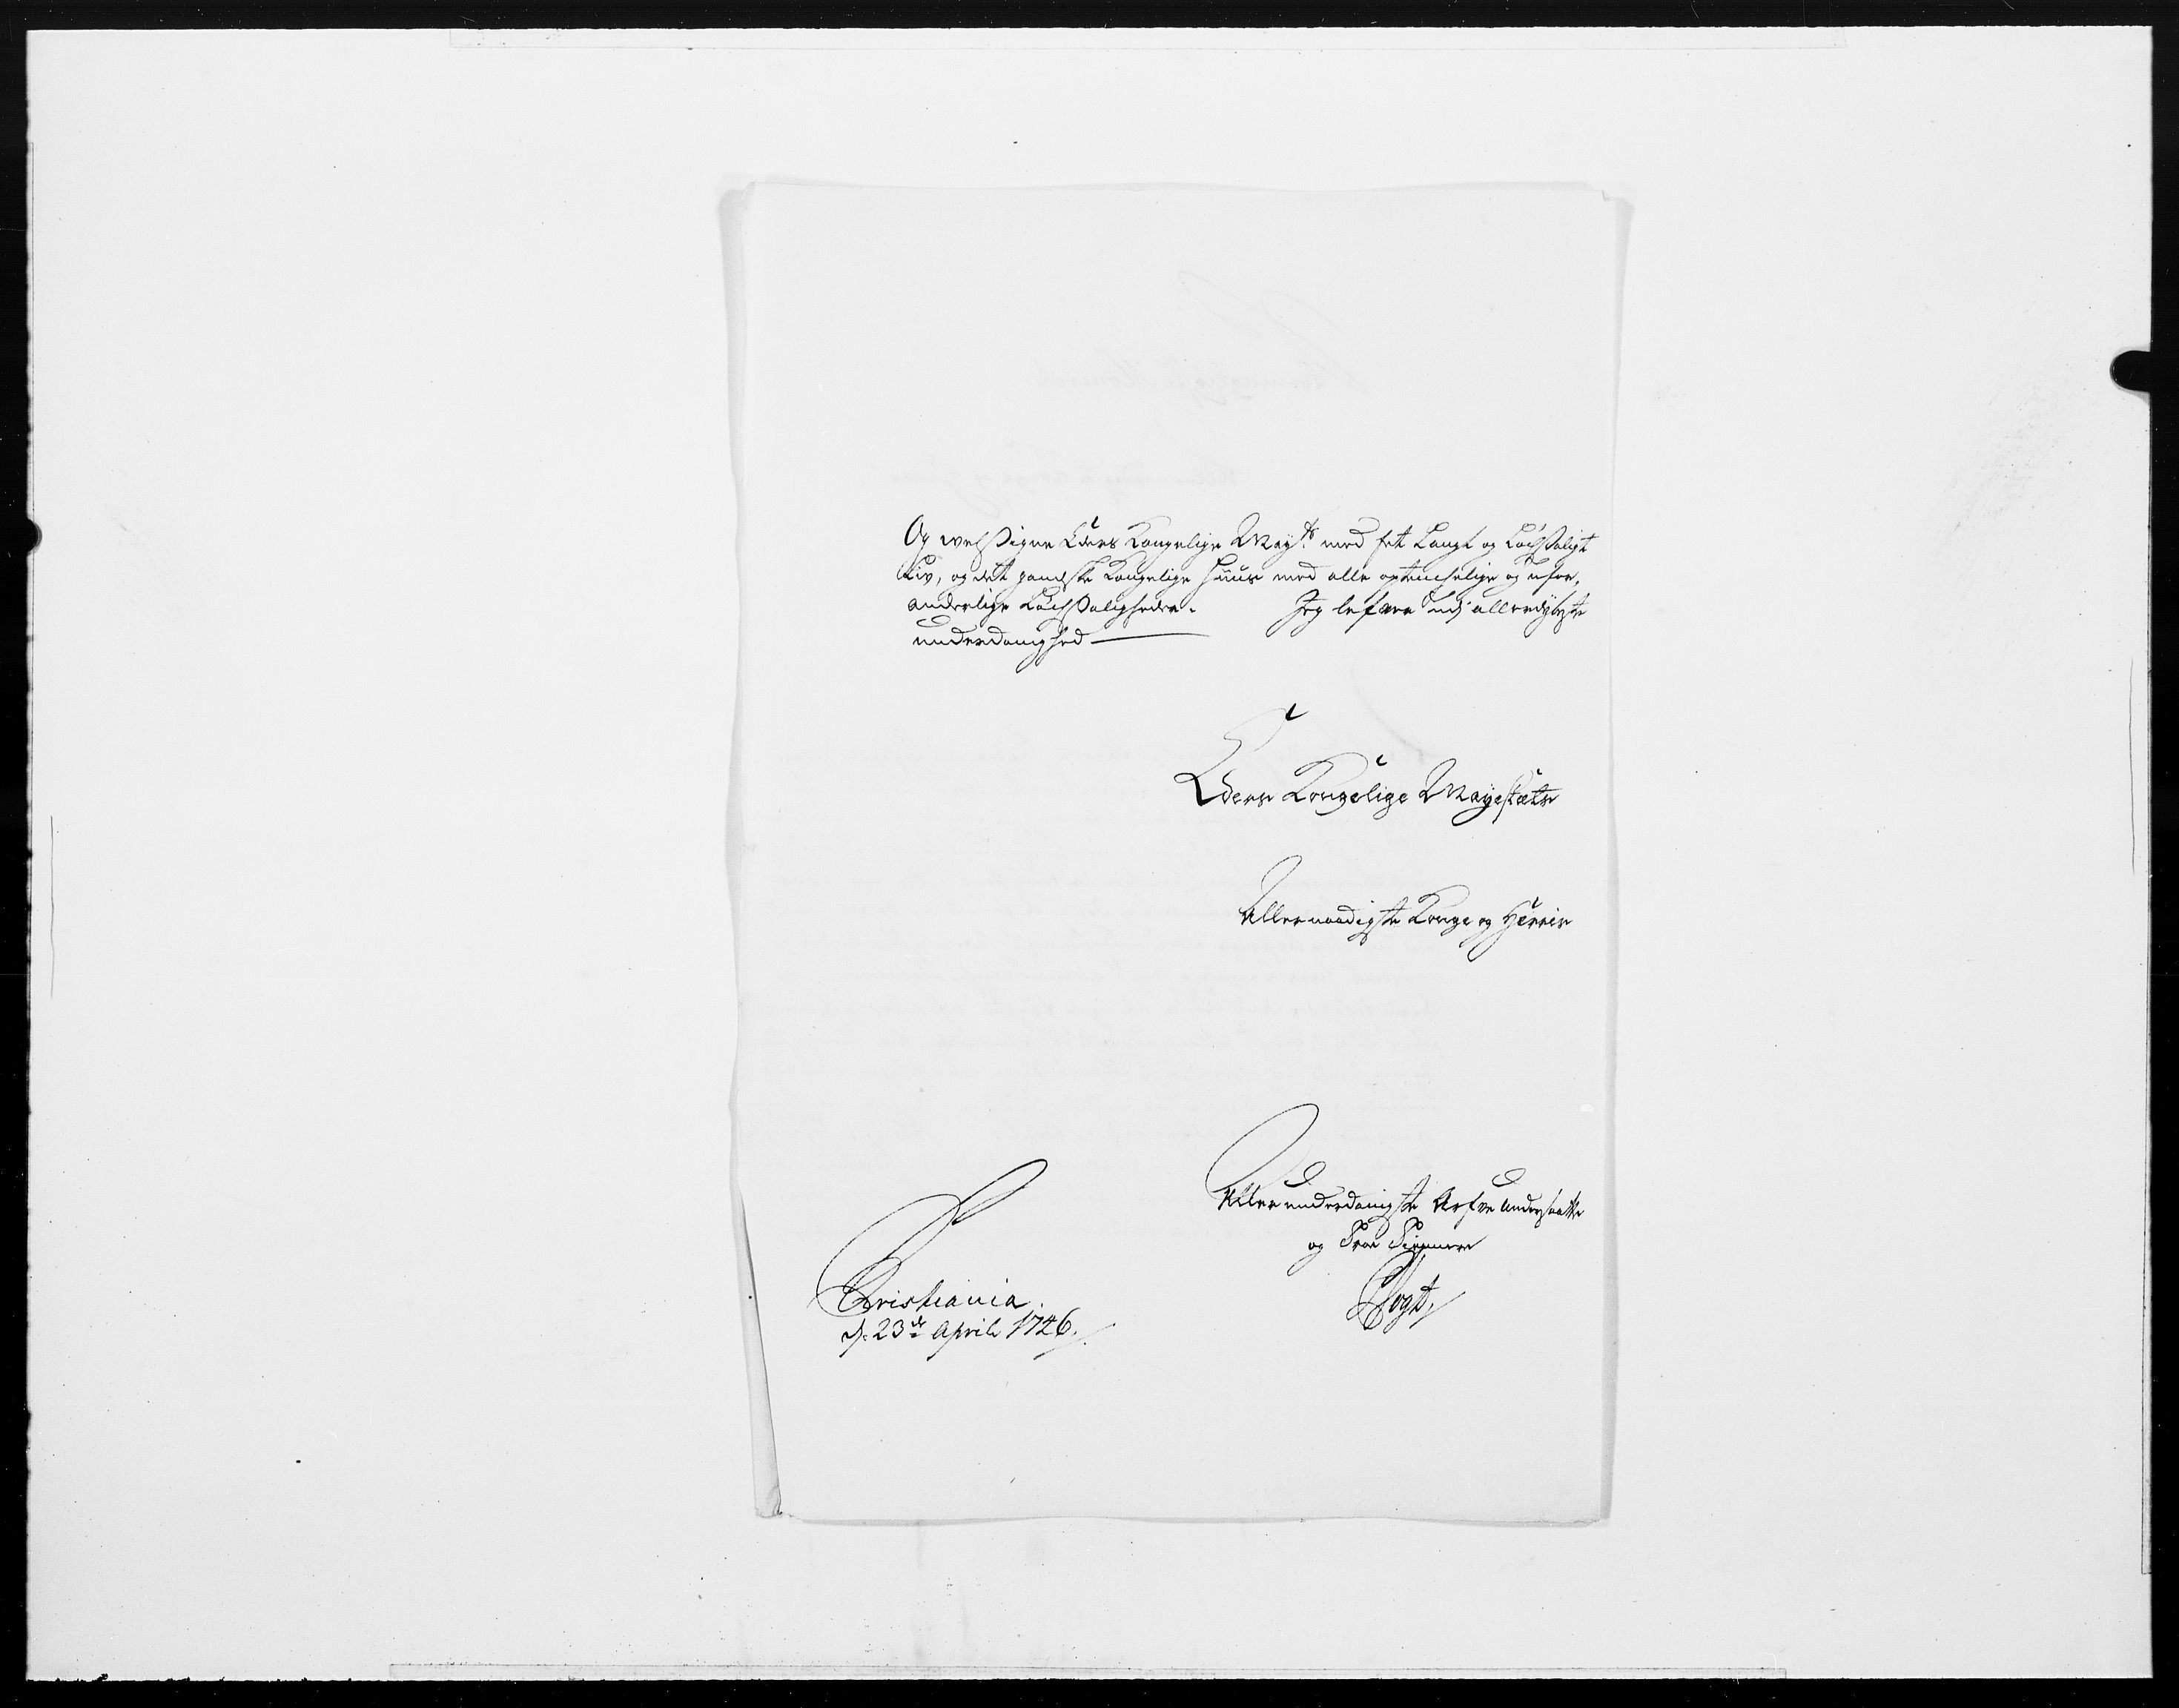 Og welsigne Eders Kongelige May.ts med fet Langt og Løcksaligt
Liv, og det gandske Kongelige Huus med alle optenchelige og ufor,
anderlige Løcksaligheder. Jeg lefver udj allerdybeste
underdanighed
Eders Kongelige Mayestæts
Allernaadigste Konge og Herris
Allerunderdanigste Arfve Undersaatte
og Troe Tienere
Vogt,
Christiania
d. 23de April 1746.